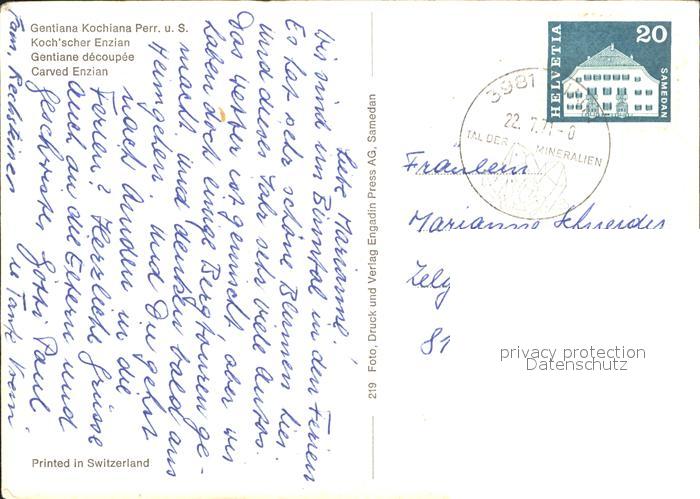 Gentiana Kochiana Perr. u. S.
Koch'scher Enzian
Gentiane découpée
Carved Enzian
Liebe Marianne!
Wir sind im Binntal in den Ferien
Es hat sehr schöne Blumen hier
und dieses Jahr sehr viele Autos.
Das Wetter ist gemischt, aber wir
haben doch einige Bergtouren ge-
macht und denken bald ans
Heimgehen. Und Du gehst
nach Anden in die
Ferien? Herzliche Grüsse
auch an die Eltern und
Geschwister, Gotti Paul
u. Tante
Fam. Rechsteiner
Printed in Switzerland
219 Foto, Druck und Verlag Engadin Press AG, Samedan
HELVETIA
20
SAMEDAN
3981
22. 7.71-0
TAL DER MINERALIEN
Fräulein
Marianne Schneider
Zelg
81
privacy protection
Datenschutz